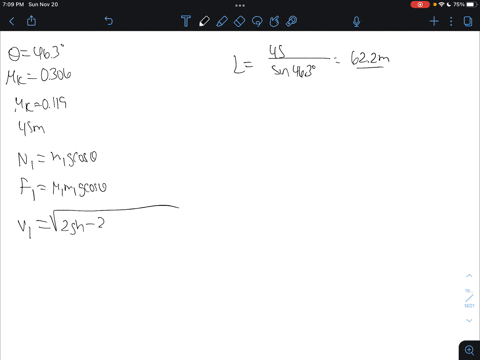 7:09 PM Sun Nov 20
75%
θ=46.3°
μk=0.306
μk=0.119
45m
N1=m1gcosθ
F1=μ1m1gcosθ
V1=√2gh-2
L= 45/sin46.3° = 62.2m